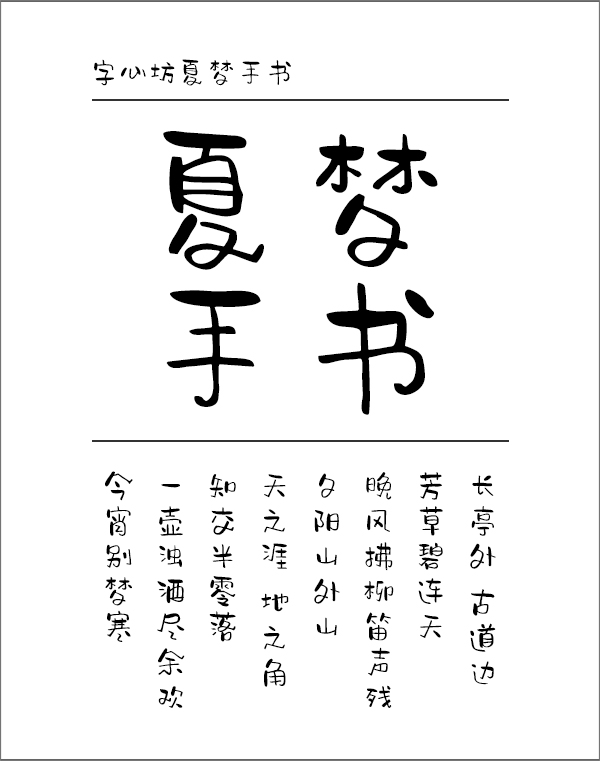 字心坊夏梦手书
夏梦
手书
长亭外 古道边
芳草碧连天
晚风拂柳笛声残
夕阳山外山
天之涯 地之角
知交半零落
一壶浊洒尽余欢
今宵别梦寒